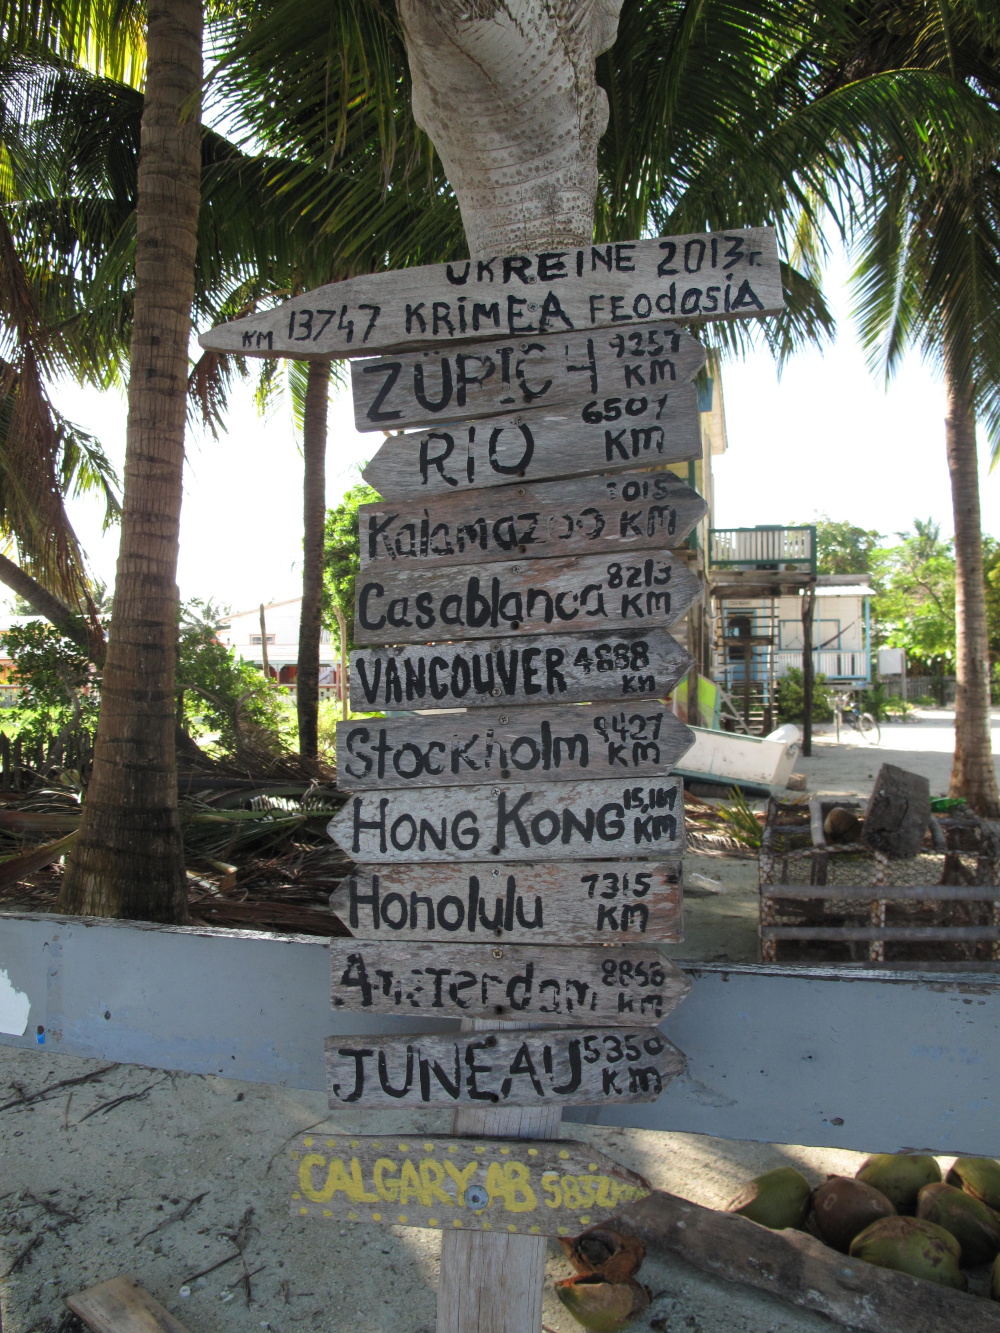 UKREINE 2013г.
KM 13747 KRiMEA FEOdosiA
ZÜRICH 9257 KM
RIO 6507 KM
Kalamazoo KM
Casablanca 8213 KM
VANCOUVER 4888 KM
Stockholm 9427 KM
HONG KONG 15,167 KM
Honolulu 7315 KM
Amsterdam KM
JUNEAU 5350 KM
CALGARY AB 5832KM